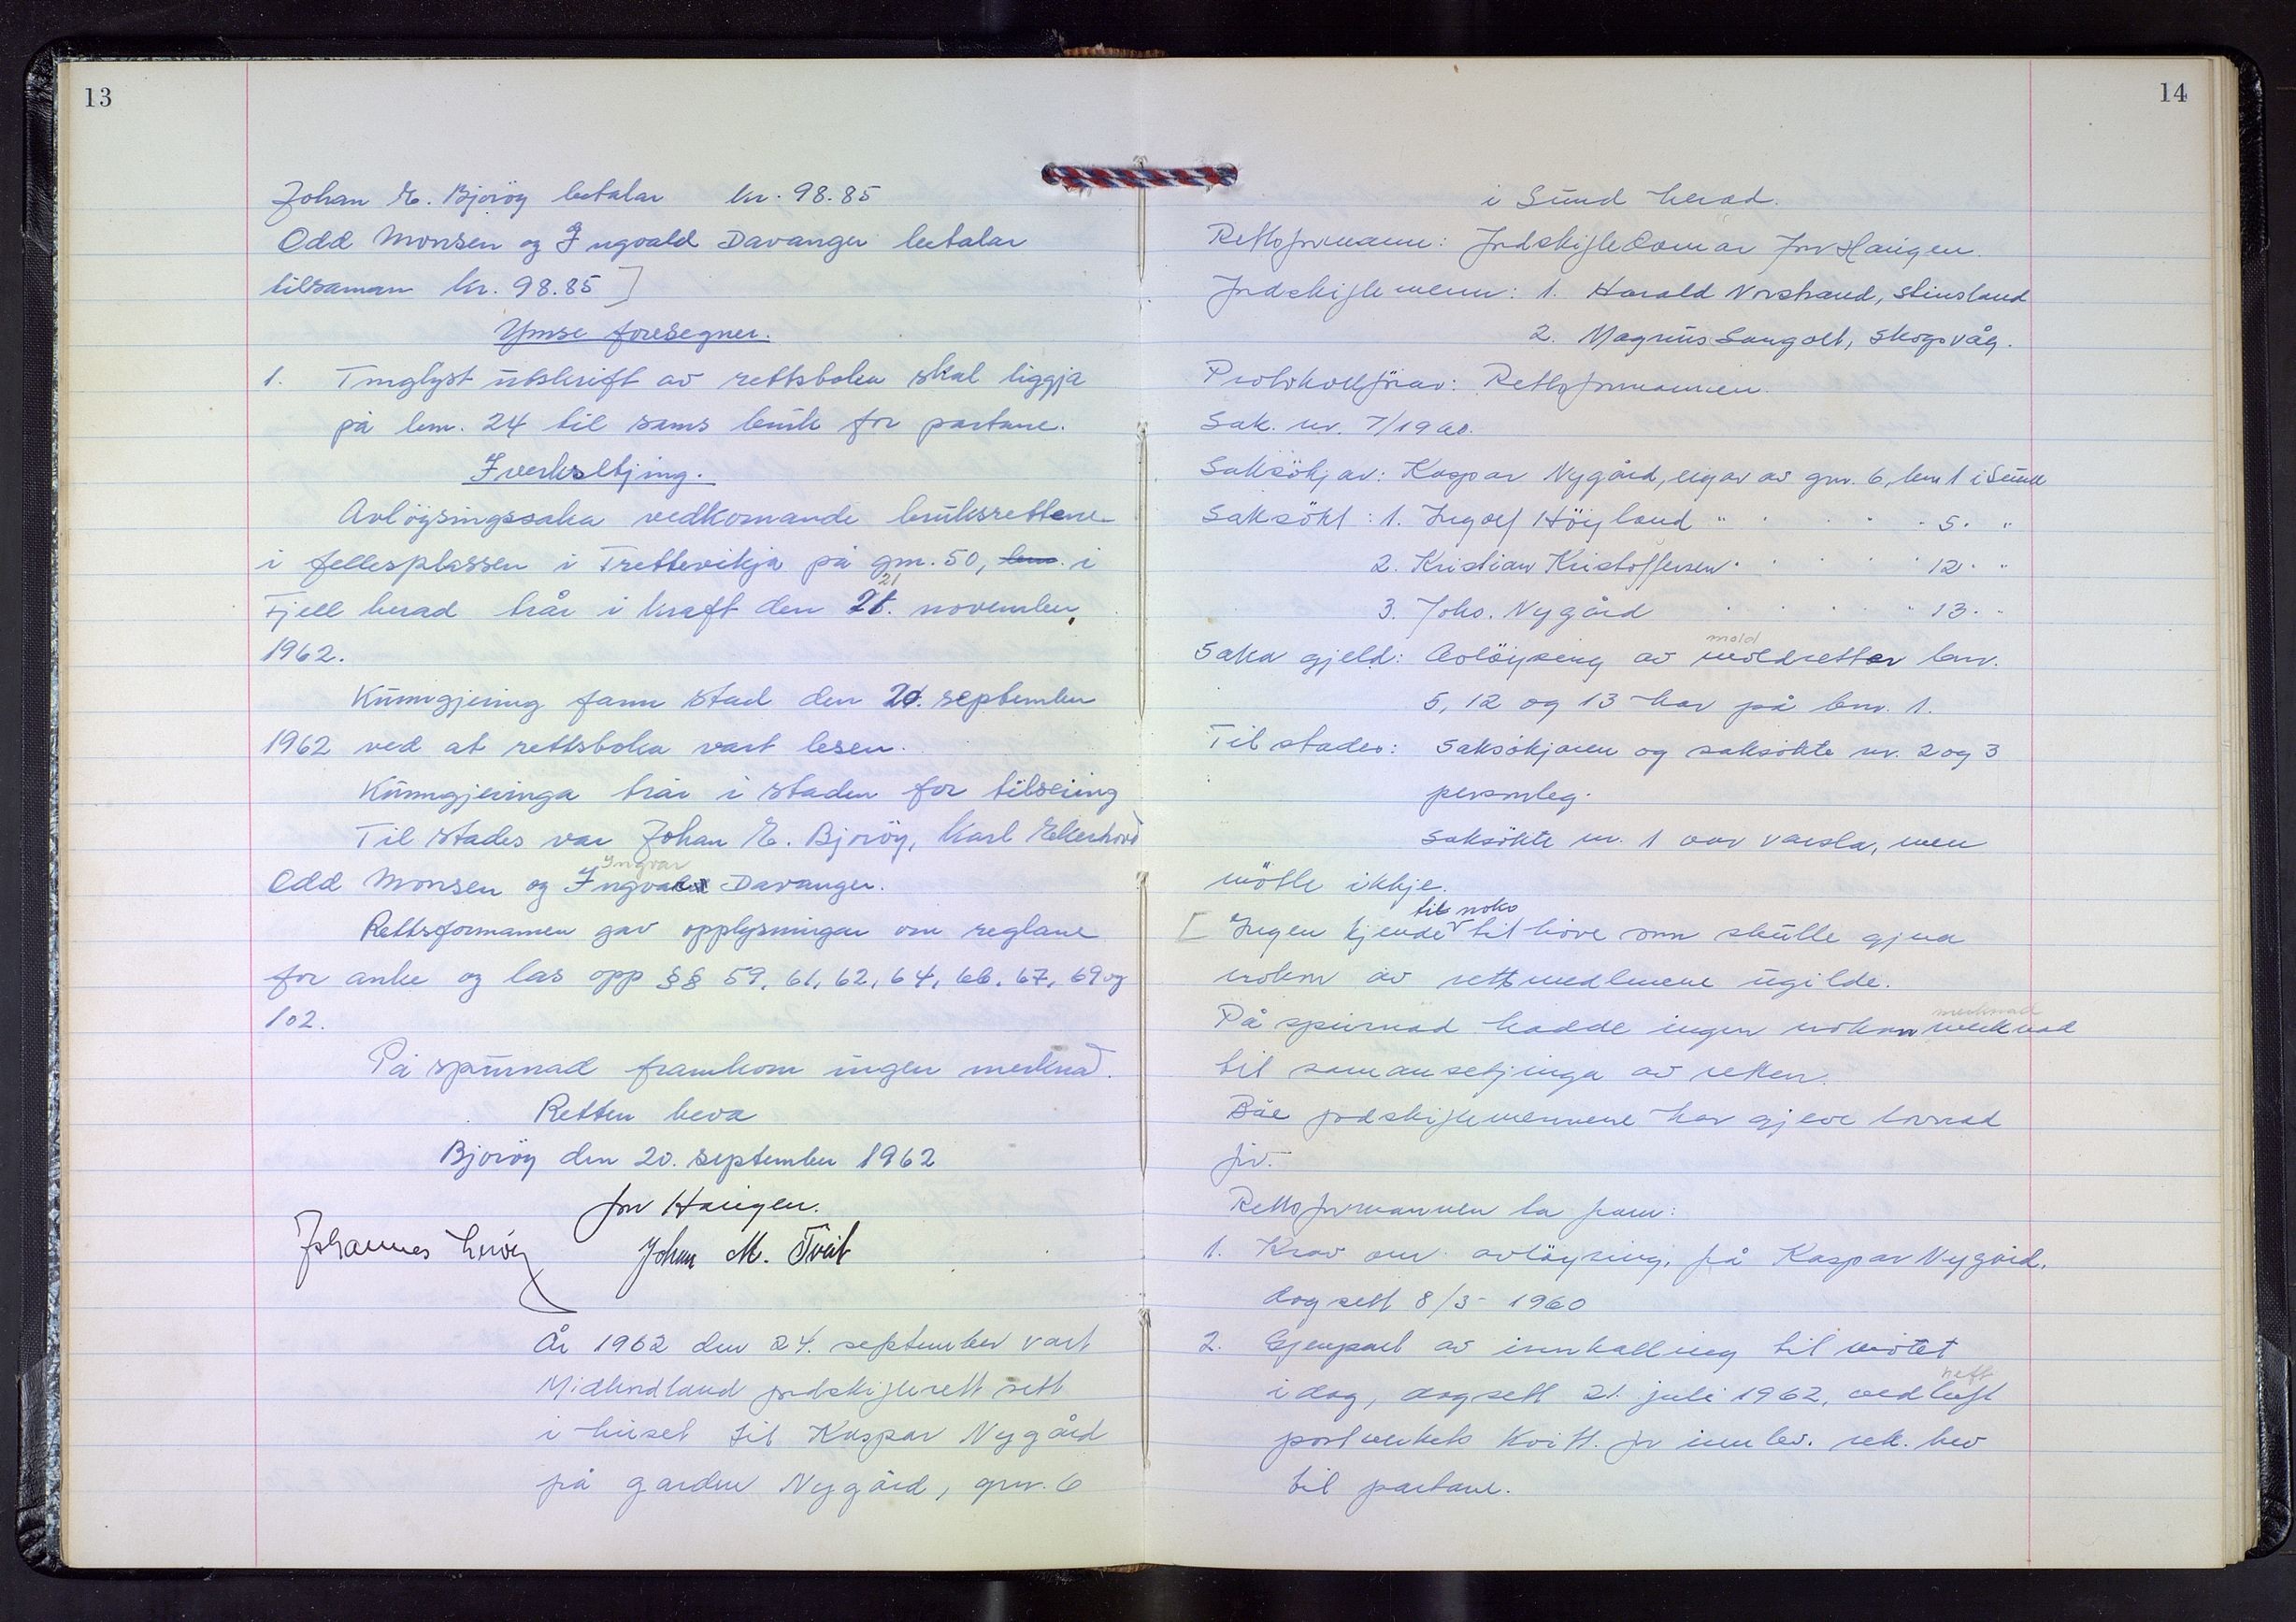 13
Johan E. Bjoröy betalar kr. 98.85
Odd Monsen og Ingvald Davanger betalar
tilsaman kr. 98.85]
Ymse foresegner.
1. Tinglyst utskrift av rettsboka skal liggja
på bnr. 24 til sams bruk for partane.
Iverksetjing.
Avlöysingssaka vedkomande bruksrettene
i fellesplassen i Trettevikja på gnr. 50, bnr. i
21
Fjell herad trår i kraft den 21. november
1962.
Kunngjering fann stad den 20. september
1962 ved at rettsboka vart lesen.
Kunngjeringa trår i staden for tilseiing
Til stades var Johan E. Bjoröy, Karl Ekerhovd
Ingvar
Odd Monsen og Ingvald Davanger.
Rettsformannen gav opplysningar om reglane
for anke og las opp §§ 59, 61, 62, 64, 66, 67, 69 og
102.
På spurnad framkom ingen merknad.
Retten heva
Bjoröy den 20. september 1962
Jon Haugen.
Johannes Johan M. Tveit
År 1962 den 24. september vart
Midhordland jordskifterett sett
i huset til Kaspar Nygård
på garden Nygård, gnr. 6
14
i Sund herad.
Rettsformann: Jordskiftedomar Jon Haugen.
Jordskiftemenn: 1. Harald Norstrand, Steinsland
2. Magnus Sangolt, Skogsvåg.
Protokollförar: Rettsformannen.
Sak. nr. 7/1960.
Saksökjar: Kaspar Nygård, eigar av gnr. 6, bnr 1 i Sund
Saksökt: 1. Ingolf Höyland " " " " 5. "
2. Kristian Kristoffersen " " " " 12. "
3. Johs. Nygård " " " " 13. "
mold
Saka gjeld: Avlöysing av moldretter bnr.
5, 12 og 13 har på bnr. 1.
Til stades: Saksökjaren og saksökte nr. 2 og 3
personleg.
Saksökte nr. 1 var varsla, men
mötte ikkje.
til noko
[ Ingen kjende v tilhöve som skulle gjera
nokon av rettsmedlemene ugilde.
merknad
På spurnad hadde ingen nokon merknad
til samansetjinga av retten.
Båe jordskiftemennene har gjeve lovnad
för.
Rettsformannen la fram:
1. Krav om avlöysing, frå Kaspar Nygård.
dagsett 8/3 - 1960
2. Gjenpart av innkalling til mötet
heft
i dag, dagsett 21. juli 1962, vedheft
postverkets kvitt. for innlev. rek. brev
til partane.